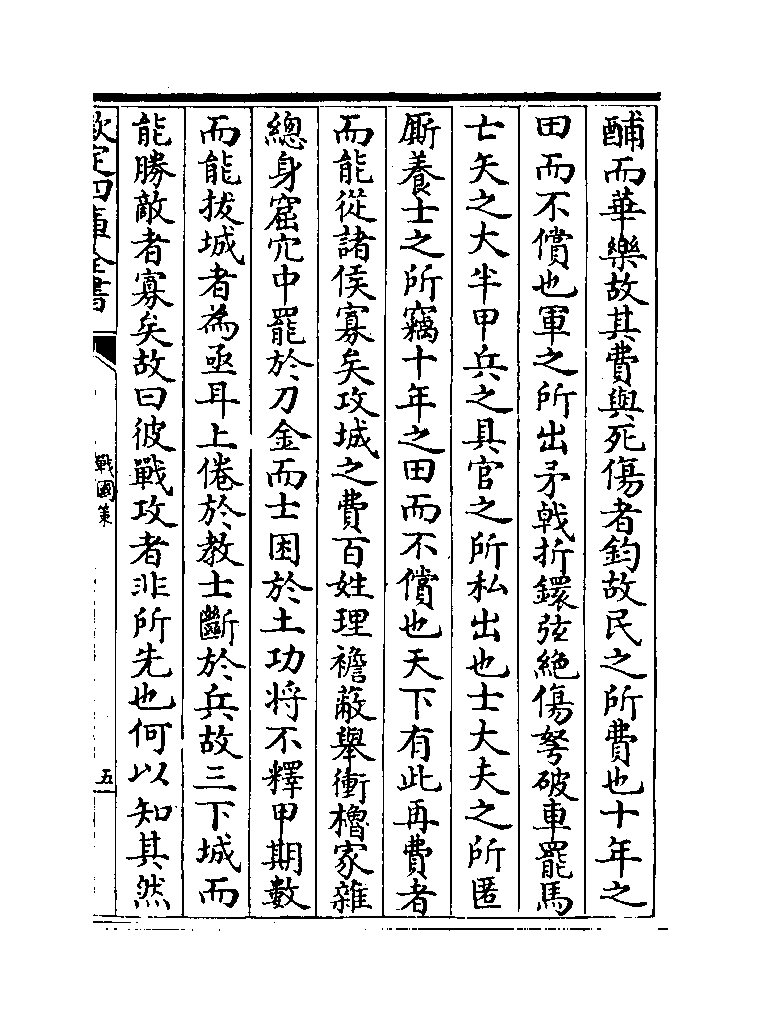 酺而華樂故其費與死傷者鈞故民之所費也十年之
田而不償也軍之所出矛戟折鐶弦絶傷弩破車罷馬
亡矢之大半甲兵之具官之所私出也士大夫之所匿
厮養士之所竊十年之田而不償也天下有此再費者
而能從諸侯寡矣攻城之費百姓理襜蔽舉衝櫓家雜
總身窟穴中罷於刀金而士困於土功将不釋甲期數
而能拔城者為亟耳上倦於教士斷於兵故三下城而
能勝敵者寡矣故曰彼戰攻者非所先也何以知其然
欽定四庫全書
戰國策
五